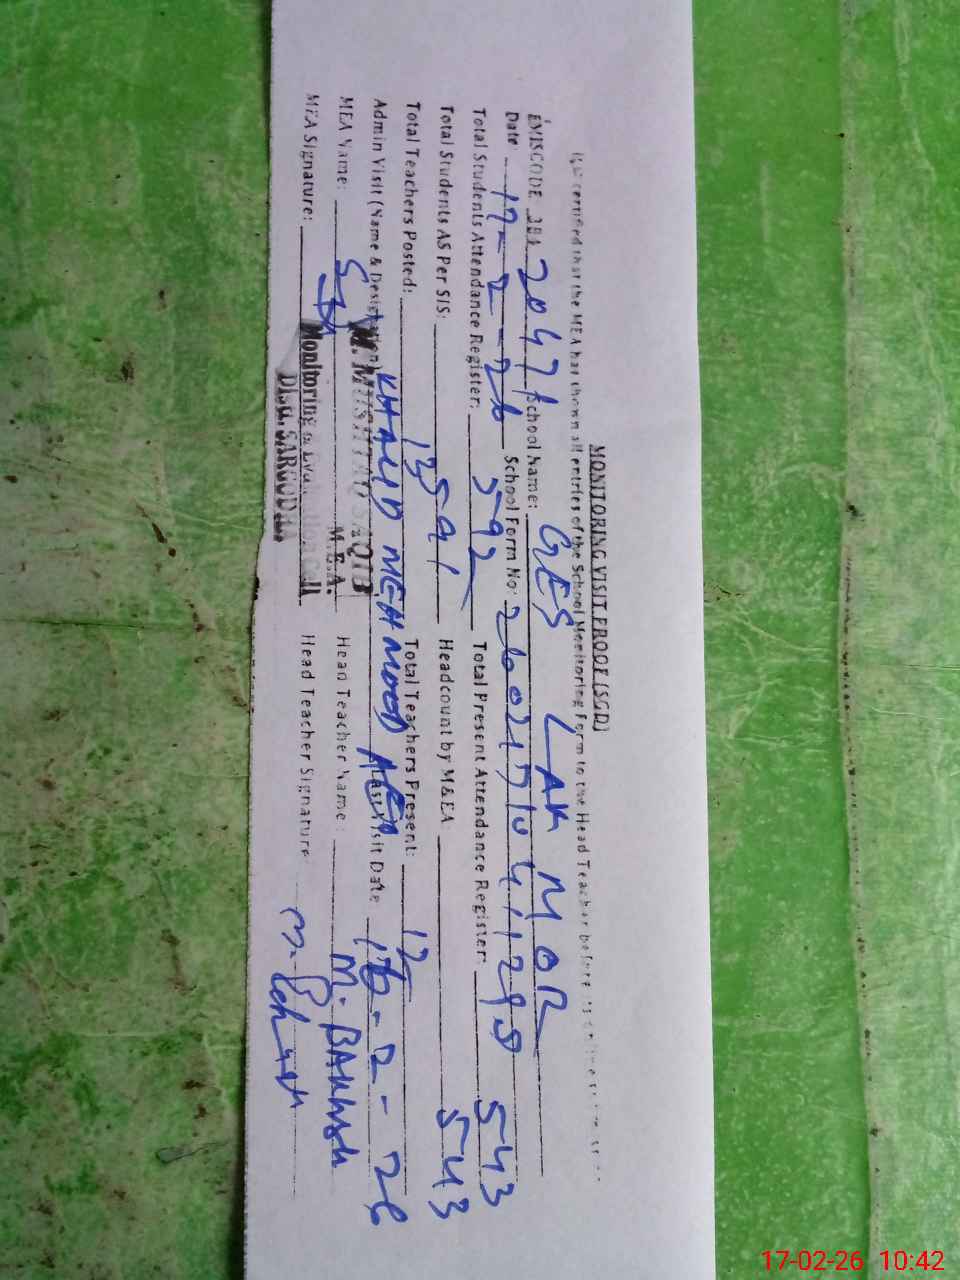 MONITORING VISIT PROOF (SGD)
certified that the MEA has shown all entries of the School Monitoring Form to the Head Teacher before
EMISCODE 384 20471 School Name: GES LAK MOR
Date 17-2-26 School Form No: 2602171041129
Total Students Attendance Register: 592 Total Present Attendance Register: 543
Total Students AS Per SIS: 591 Headcount by M&EA 543
Total Teachers Posted: 13 Total Teachers Present: 12
Admin Visit (Name & Designation) KHALID MEHMOOD AEO Last Visit Date 16-2-26
MEA Name: M. MUSHTAQ SAQIB Head Teacher Name: M. BAKHSH
M.E.A.
MEA Signature: Monitoring & Evaluation Cell Head Teacher Signature
Distt. SARGODHA
17-02-26 10:42